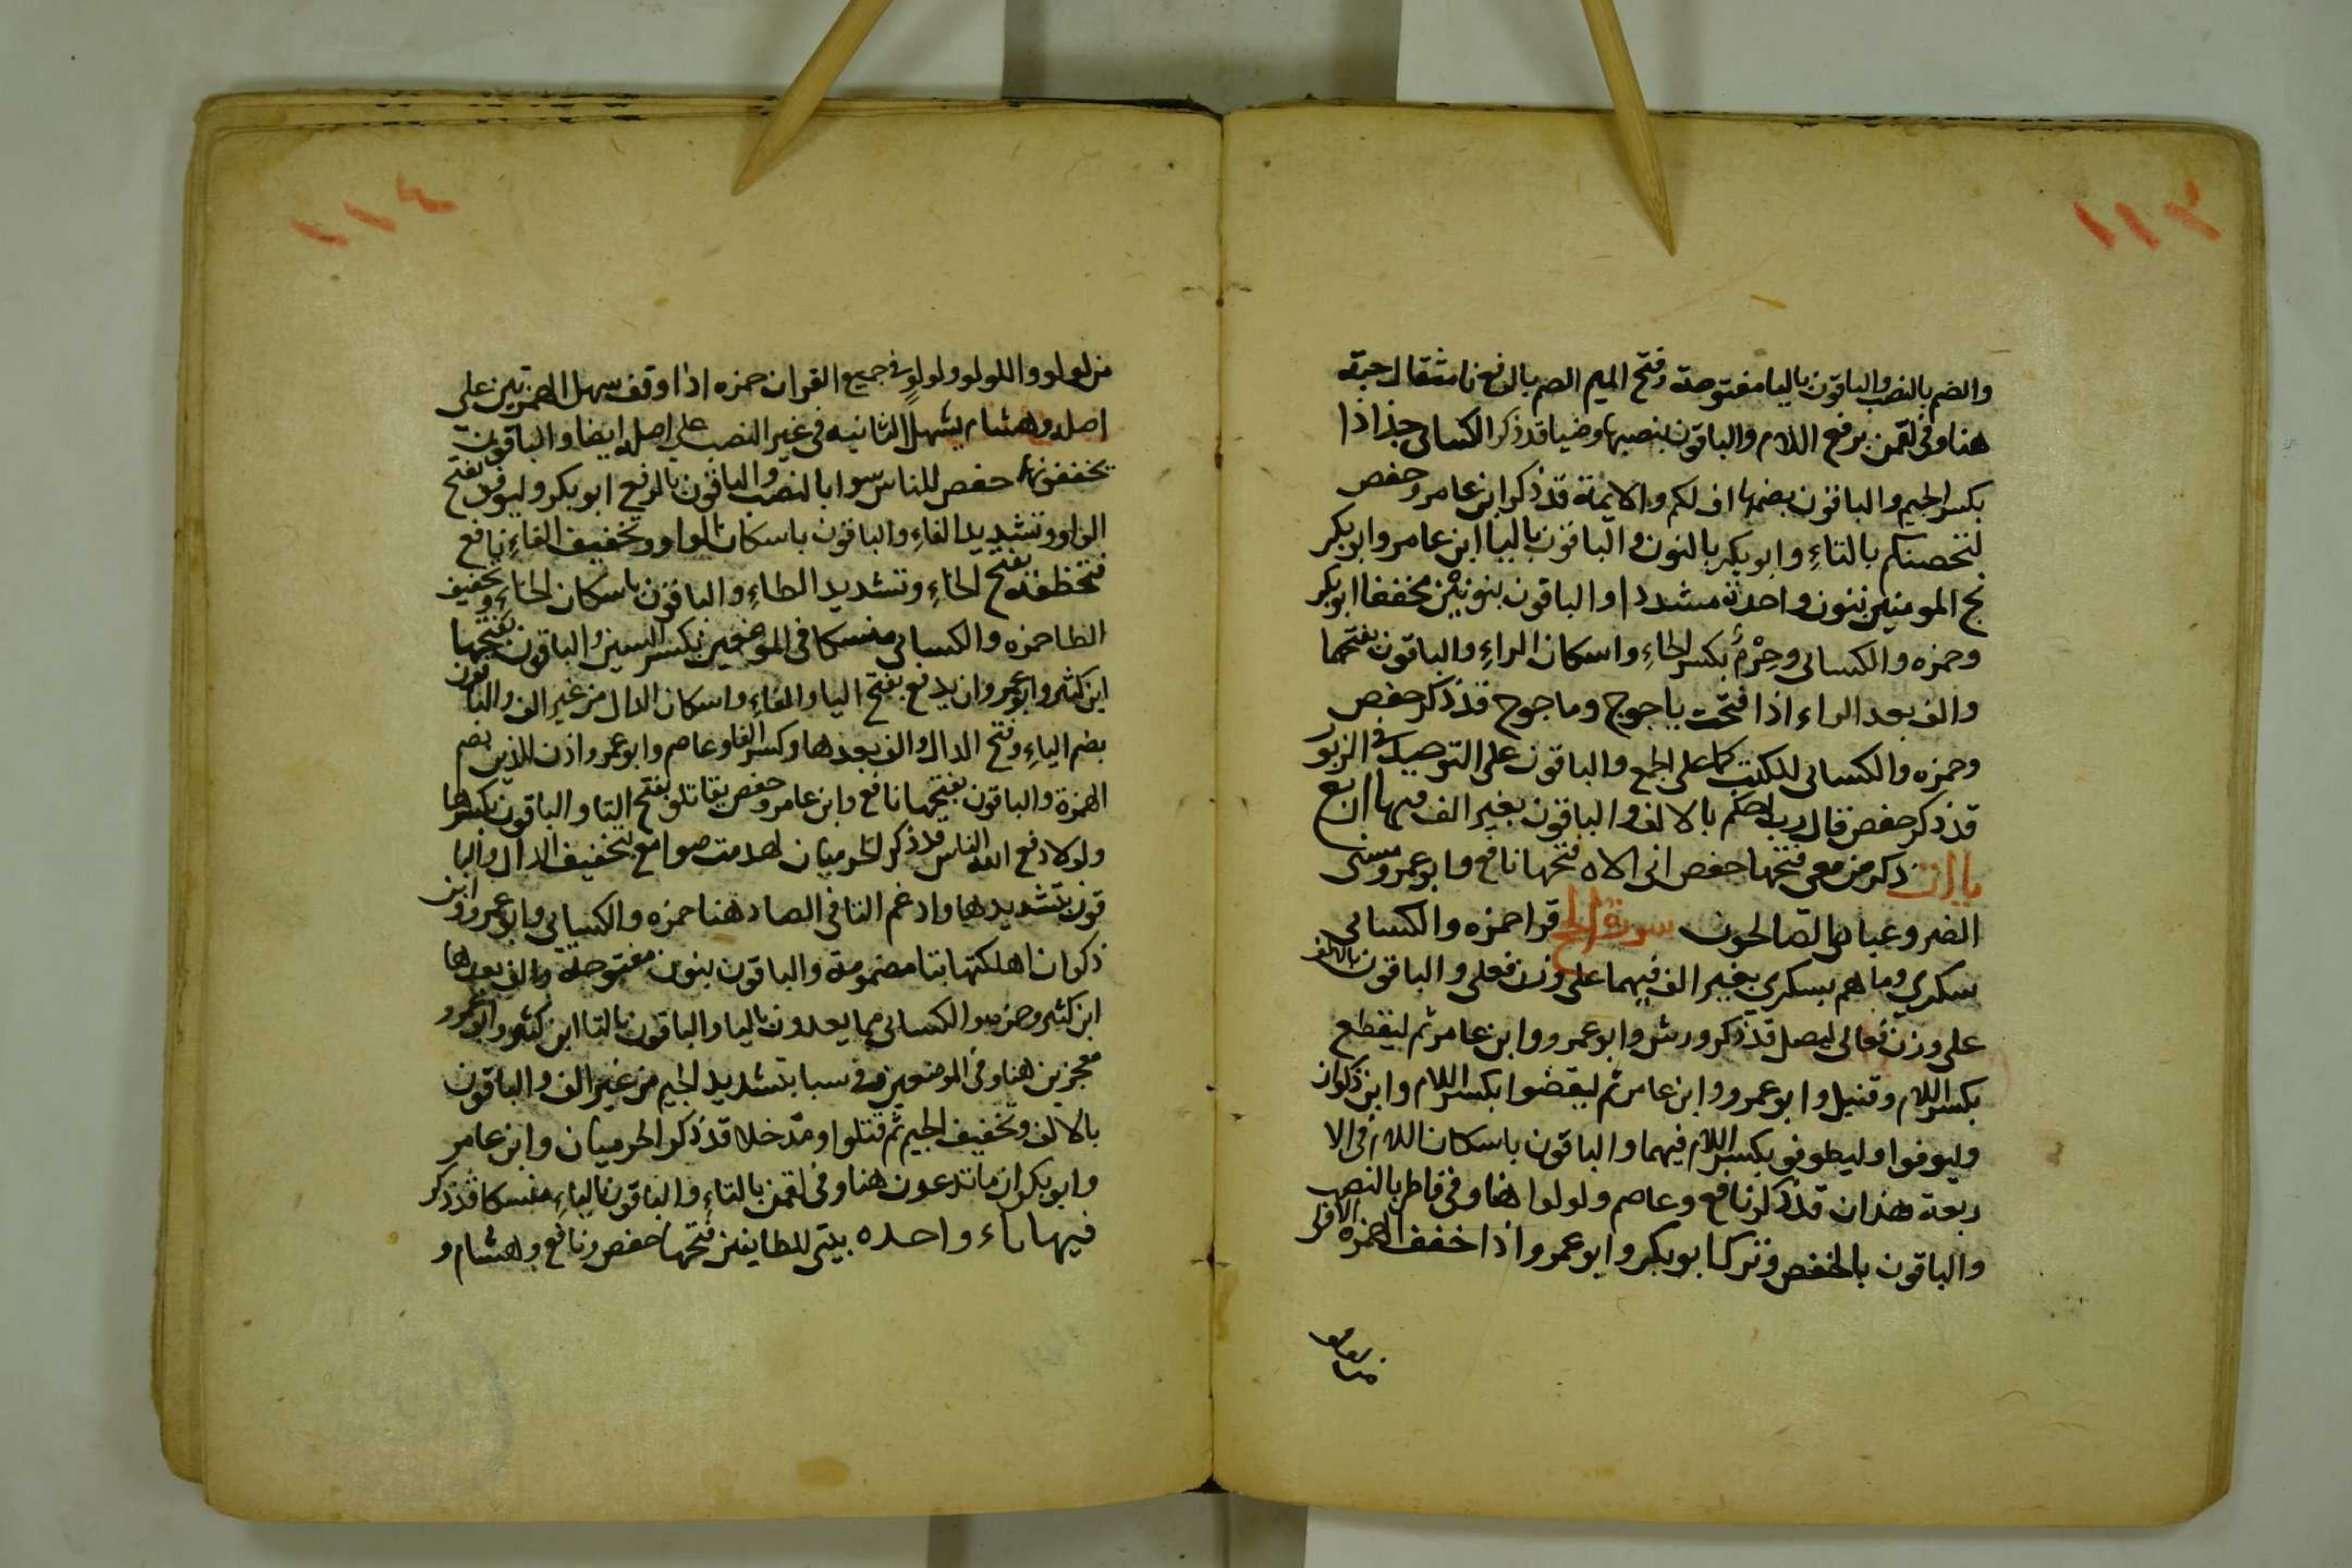 ١١٣
والضم بالنصب والباقون باليا مفتوحة وفتح الميم الصم بالرفع نا مثقال حبة
هنا وفى لقمن برفع اللام والباقون بنصبها وضيا قد ذكر الكسائى جذاذا
بكسر الجيم والباقون بضمها اف لكم والايمة قد ذكر ابن عامر وحفص
لتحصنكم بالتاءِ وابو بكر بالنون والباقون باليا ابن عامر وابو بكر
نج المومنين بنون واحدة مشددا والباقون بنونين مخففا ابو بكر
وحمزه والكسائى وحِرْمٌ بكسر الحاءِ واسكان الراءِ والباقون بفتحهما
والف بعد الراء اذا فتحت ياجوج وماجوج قد ذكر حفص
وحمزه والكسائى للكتب كما على الجمع والباقون على التوحيد فى الزبور
قد ذكر حفص قال رب احكم بالالف والباقون بغير الف فيها اربع
ياات ذكر من معى فتحها حفص انى الاه فتحها نافع وابو عمرو مسنى
الضر وعبادى الصالحون سورة الحج قرا حمزه والكسائى
سكرى وما هم بسكرى بغير الف فيهما على وزن فعلى والباقون بالالف
على وزن فُعالى ليضل قد ذكر ورش وابو عمرو وابن عامر ثم ليقطع
بكسر اللام وقنبل وابو عمرو وابن عامر ثم ليقضوا بكسر اللام وابن ذكوان
وليوفوا وليطوفو بكسر اللام فيهما والباقون باسكان اللام فى الا
ربعة هذان قد ذكر نافع وعاصم ولولوا هنا وفى فاطر بالنصب
والباقون بالخفض وترك ابو بكر وابو عمرو اذا خفف الهمزه الاولى
١١٤
من لولو واللولو ولولوٍ فى جميع القران حمزه اذا وقف سهل الهمزتين على
اصله وهشام يسهل الثانيه فى غير النصب على اصله ايضا والباقون
يخففونها حفص للناس سوا بالنصب والباقون بالرفع ابو بكر وليوفو بفتح
الواو وتشديد الفاءِ والباقون باسكان الواو وتخفيف الفاءِ نافع
فتخطفه بفتح الخاءِ وتشديد الطاءِ والباقون باسكان الخاءِ وتخفيف
الطا حمزه والكسائى منسكا فى الموضعين بكسر السين والباقون بفتحها
ابن كثير وابو عمرو ان يدفع بفتح اليا والفاءِ واسكان الدال من غير الف والباقون
بضم الياءِ وفتح الدال والف بعدها وكسر الفا وعاصم وابو عمرو اذن للذين بضم
الهمزة والباقون بفتحها نافع وابن عامر وحفص يقاتلو بفتح التا والباقون بكسرها
ولولا دفع الله الناس قد ذكر الحرميان لهدمت صوامع بتخفيف الدال والبا
قون بتشديدها وادغم التا فى الصاد هنا حمزه والكسائى وابو عمرو وابن
ذكوان اهلكتها بتا مضمومة والباقون بنون مفتوحة والف بعدها
ابن كثير وحمزه والكسائى مما يعدون باليا والباقون بالتا ابن كثير وابو عمرو
معجزين هنا وفى الموضعين فى سبا بتشديد الجيم من غير الف والباقون
بالالف وتخفيف الجيم ثم قتلوا ومدخلا قد ذكر الحرميان وابن عامر
وابو بكر ان ما تدعون هنا وفى لقمن بالتاءِ والباقون بالياءِ منسكا قد ذكر
فيها ياء واحده بيتى للطايفين فتحها حفص ونافع وهشام و